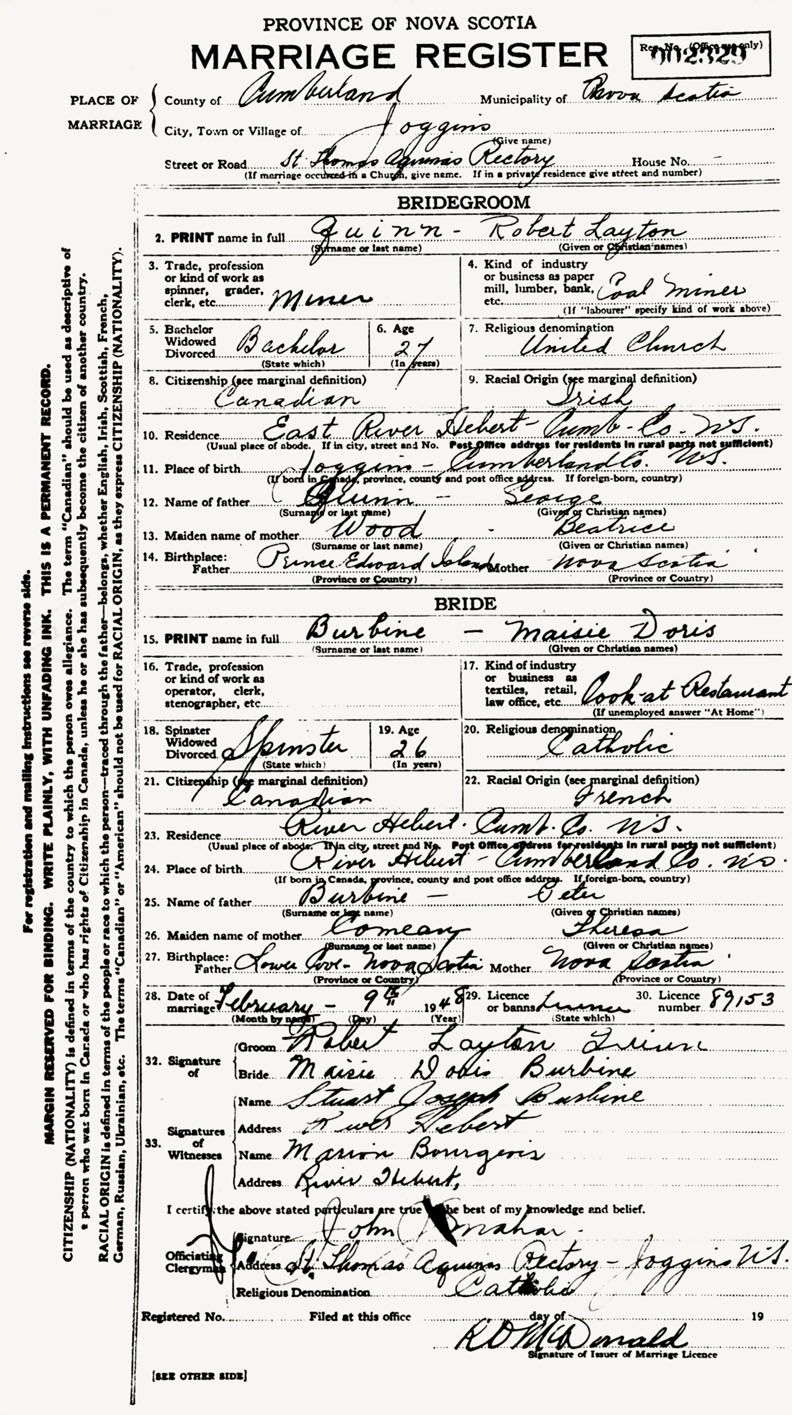 PROVINCE OF NOVA SCOTIA
MARRIAGE REGISTER
Reg. No. (Office use only)
002329
PLACE OF MARRIAGE
County of Cumberland Municipality of Nova Scotia
City, Town or Village of Joggins
(Give name)
Street or Road St Thomas Aquinas Rectory House No. -
(If marriage occurred in a Church, give name. If in a private residence give street and number)
BRIDEGROOM
2. PRINT name in full Quinn - Robert Layton
(Surname or last name) (Given or Christian names)
3. Trade, profession or kind of work as spinner, grader, clerk, etc. Miner
4. Kind of industry or business as paper mill, lumber, bank, etc. Coal Miner
(If "labourer" specify kind of work above)
5. Bachelor Widowed Divorced Bachelor
(State which)
6. Age 27
(In years)
7. Religious denomination
United Church
8. Citizenship (see marginal definition)
Canadian
9. Racial Origin (see marginal definition)
Irish
10. Residence East River Hebert - Cumb. Co. N.S.
(Usual place of abode. If in city, street and No. Post Office address for residents in rural parts not sufficient)
11. Place of birth Joggins - Cumberland Co. N.S.
(If born in Canada, province, county and post office address. If foreign-born, country)
12. Name of father Quinn - George
(Surname or last name) (Given or Christian names)
13. Maiden name of mother Wood - Beatrice
(Surname or last name) (Given or Christian names)
14. Birthplace: Father Prince Edward Island Mother Nova Scotia
(Province or Country) (Province or Country)
BRIDE
15. PRINT name in full Burbine - Maisie Doris
(Surname or last name) (Given or Christian names)
16. Trade, profession or kind of work as operator, clerk, stenographer, etc.
17. Kind of industry or business as textiles, retail, law office, etc. Cook-at Restaurant
(If unemployed answer "At Home")
18. Spinster Widowed Divorced Spinster
(State which)
19. Age 26
(In years)
20. Religious denomination
Catholic
21. Citizenship (see marginal definition)
Canadian
22. Racial Origin (see marginal definition)
French
23. Residence River Hebert. Cumb. Co. N.S.
(Usual place of abode. If in city, street and No. Post Office address for residents in rural parts not sufficient)
24. Place of birth River Hebert - Cumberland Co. N.S.
(If born in Canada, province, county and post office address. If foreign-born, country)
25. Name of father Burbine - Peter
(Surname or last name) (Given or Christian names)
26. Maiden name of mother Comeau Theresa
(Surname or last name) (Given or Christian names)
27. Birthplace: Father Lower Cove - Nova Scotia Mother Nova Scotia
(Province or Country) (Province or Country)
28. Date of marriage February - 9th 1948
(Month by name) (Day) (Year)
29. Licence or banns License
(State which)
30. Licence number 89153
32. Signature of
Groom Robert Layton Quinn
Bride Maisie Doris Burbine
33. Signatures of Witnesses
Name Stuart Joseph Burbine
Address River Hebert
Name Marion Bourgeois
Address River Hebert,
I certify the above stated particulars are true to the best of my knowledge and belief.
Officiating Clergyman
Signature John
Address St. Thomas Aquinas Rectory - Joggins N.S.
Religious Denomination Catholic
Registered No. Filed at this office day of 19
R D McDonald
Signature of Issuer of Marriage Licence
[SEE OTHER SIDE]
For registration and mailing instructions see reverse side.
MARGIN RESERVED FOR BINDING. WRITE PLAINLY, WITH UNFADING INK. THIS IS A PERMANENT RECORD.
CITIZENSHIP (NATIONALITY) is defined in terms of the country to which the person owes allegiance. The term "Canadian" should be used as descriptive of
a person who was born in Canada or who has rights of Citizenship in Canada, unless he or she has subsequently become the citizen of another country.
RACIAL ORIGIN is defined in terms of the people or race to which the person—traced through the father—belongs, whether English, Irish, Scottish, French,
German, Russian, Ukrainian, etc. The terms "Canadian" or "American" should not be used for RACIAL ORIGIN, as they express CITIZENSHIP (NATIONALITY).